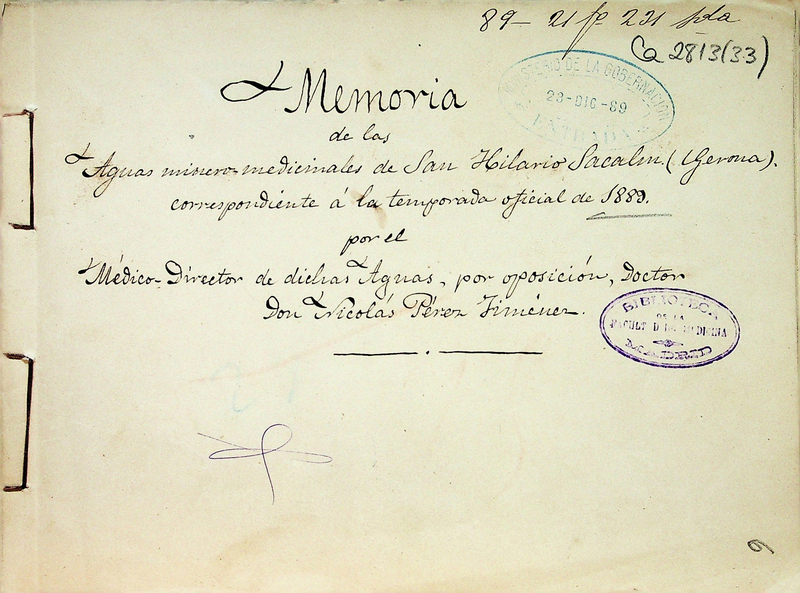 89 - 21 fº 221 pda
Ca 2813 (33)
MINISTERIO DE LA GOBERNACIÓN
23-DIC-89
ENTRADA
Memoria
de las
Aguas minero-medicinales de San Hilario Sacalm (Gerona).
correspondiente á la temporada oficial de 1889.
por el
Médico-Director de dichas Aguas, por oposición, Doctor
Don Nicolás Pérez Jiménez.
BIBLIOTECA
DE LA
FACULT D DE MEDICINA
MADRID